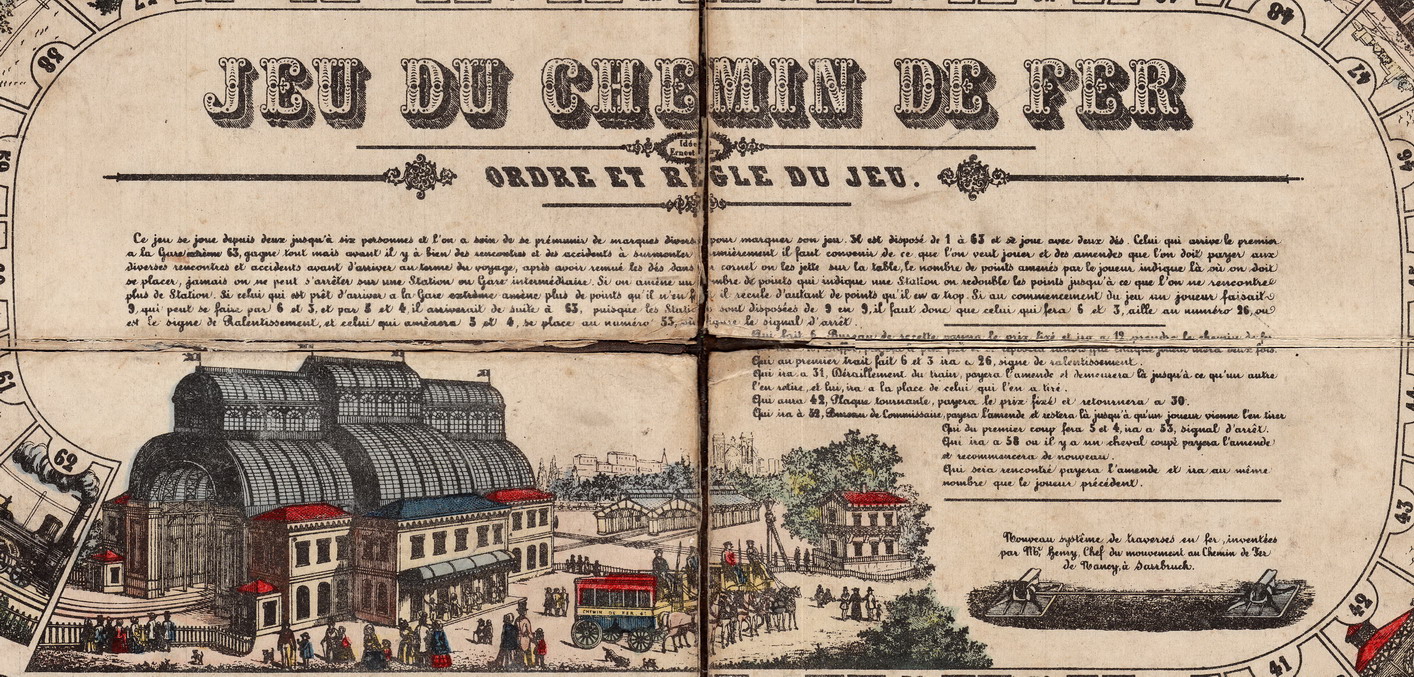 JEU DU CHEMIN DE FER
Idée
Ernest
ORDRE ET REGLE DU JEU.
Ce jeu se joue depuis deux jusqu'à six personnes et l'on a soin de se prémunir de marques divers pour marquer son jeu. Il est disposé de 1 à 63 et se joue avec deux dés. Celui qui arrive le premier
a la Gare extrême 63, gagne tout mais avant il y à bien des rencontres et des accidents à surmonter. mièrement il faut convenir de ce que l'on veut jouer et des amendes que l'on doit payer aux
diverses rencontres et accidents avant d'arriver au terme du voyage, après avoir remué les dés dans cornet on les jette sur la table, le nombre de points amenés par le joueur indique là où on doit
se placer, jamais on ne peut s'arrêter sur une Station ou Gare intermédiaire. Si on amène un mbre de points qui indique une Station on redouble les points jusqu'à ce que l'on ne rencontre
plus de Station. Si celui qui est prêt d'arriver a la Gare extrême amène plus de points qu'il n'en il recule d'autant de points qu'il en a trop. Si au commencement du jeu un joueur faisait
9, qui peut se faire par 6 et 3, et par 5 et 4, il arriverait de suite à 63, puisque les Stati sont disposées de 9 en 9, il faut donc que celui qui fera 6 et 3, aille au numéro 26, où
est le signe de Ralentissement, et celui qui amènera 5 et 4, se place au numéro 53, où figure le signal d'arrêt.
Qui fait 6, Bureau de recette payera le prix fixé et ira a 12 prendre le chemin de fer
que chaque joueur aura deux fois.
Qui au premier trait fait 6 et 3 ira a 26, signe de ralentissement.
Qui ira a 31, Déraillement du train, payera l'amende et demeurera là jusqu'à ce qu'un autre
l'en retire, et lui, ira a la place de celui qui l'en a tiré.
Qui aura 42, Plaque tournante, payera le prix fixé et retournera a 30.
Qui ira à 52, Bureau de Commissaire, payera l'amende et restera là jusqu'à qu'un joueur vienne l'en tirer
Qui du premier coup fera 5 et 4, ira a 53, signal d'arrêt.
Qui ira a 58 ou il y a un cheval coupé payera l'amende
et recommencera de nouveau.
Qui sera rencontré payera l'amende et ira au même
nombre que le joueur précédent.
Nouveau système de traverses en fer, inventées
par Mr. Henry, Chef du mouvement au Chemin de Fer
de Nancy, à Sarrbruck.
CHEMIN DE FER
58
59
61
62
48
47
46
44
43
42
41